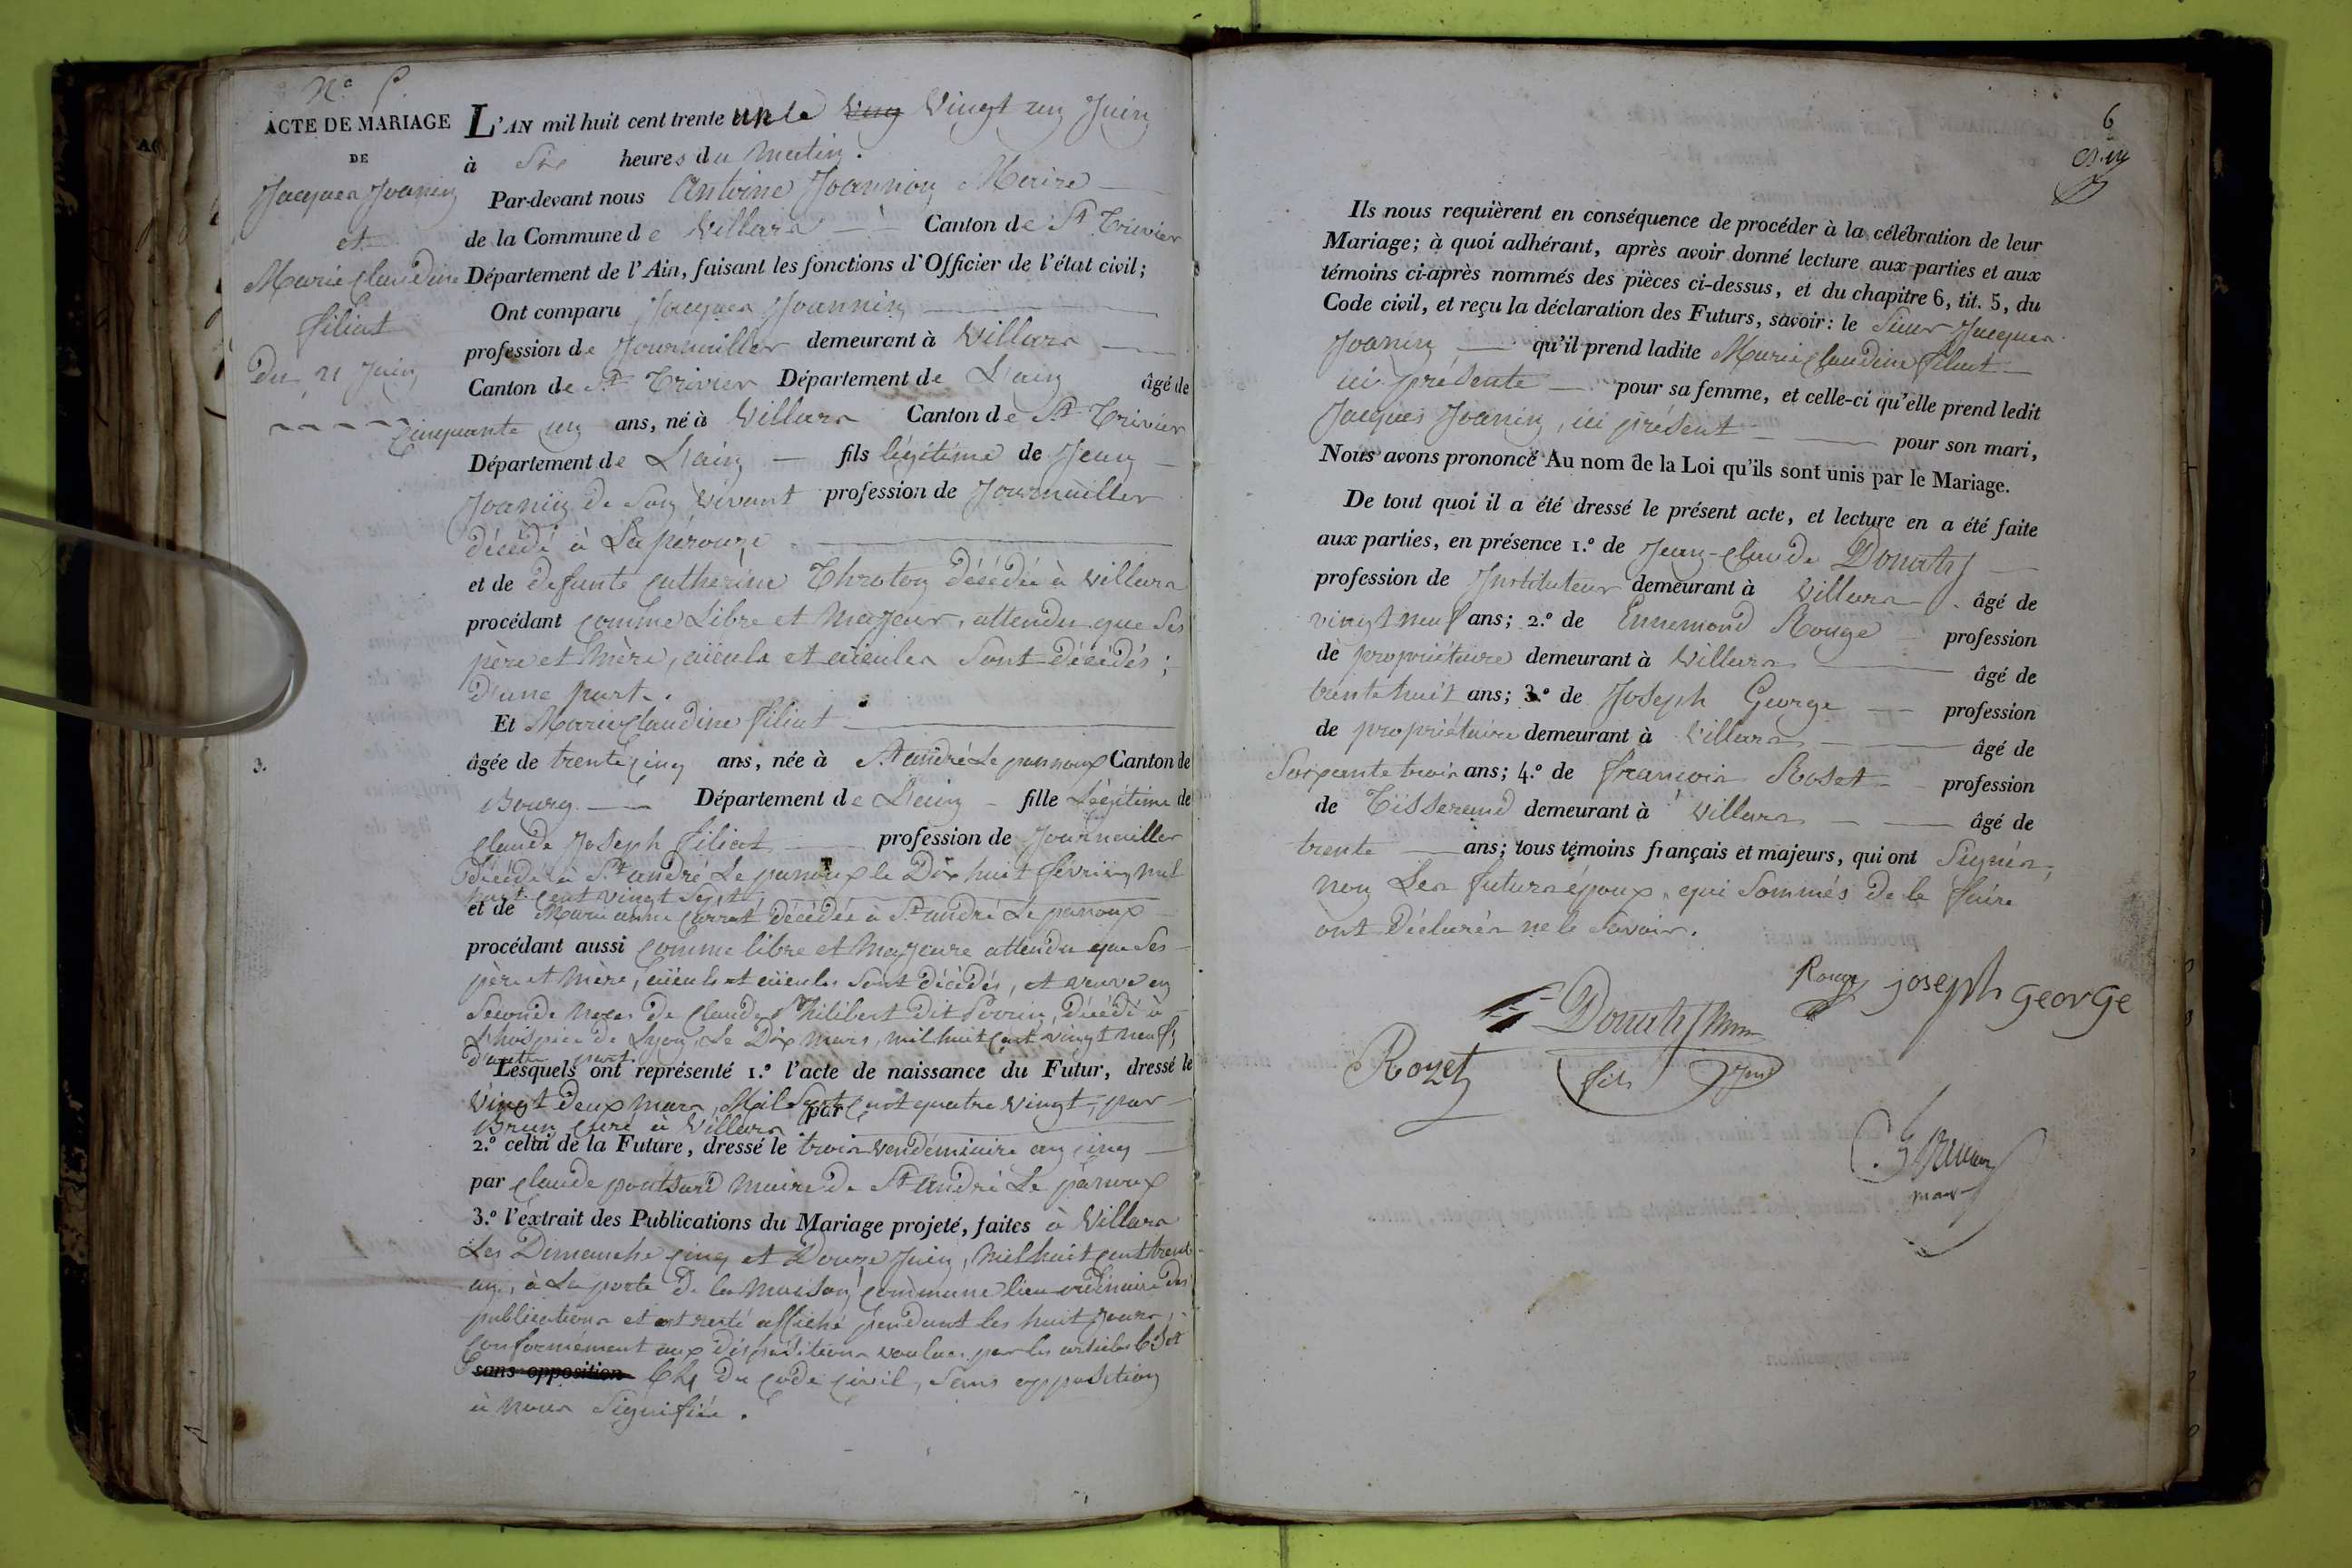 N.º 5.
ACTE DE MARIAGE
DE
Jacques Joanin
et
Marie Claudine
filiat
Du 21 Juin
L'AN mil huit cent trente un le ving Vingt un Juin
à Six heures du Matin.
Par-devant nous Antoine Joannon Maire
de la Commune de Villars Canton de St Trivier
Département de l'Ain, faisant les fonctions d'Officier de l'état civil;
Ont comparu Jacques Joannin
profession de Journaillier demeurant à Villars
Canton de St Trivier Département de L'ain âgé de
Cinquante un ans, né à Villars Canton de St Trivier
Département de L'ain fils légitime de Jean
Joanin de Son vivant profession de Journaillier
décédé à Lapérouze
et de defunte Catherine Throton décédée à Villars
procédant comme Libre et Majeur, attendu que Ses
père et mère, aïeuls et aïeules Sont décédés;
d'une part.
Et Marie Claudine filiat
3.
âgée de trente cinq ans, née à St andré Le pannoux Canton de
Bourg Département de L'ain fille Légitime de
Claude Joseph filiat profession de Journaillier
décédé à St andré Le panoux le Dix huit février mil
huit Cent vingt Sept
et de Marie anne Carrat décédée à St andré Le panoux
procédant aussi comme libre et majeure attendu que Ses
père et mère, aïeuls et aïeules Sont décédés, et veuve en
Seconde noces de Claude Philibert dit Perrin, décédé à
L'hospice de Lyon, Le Dix mars, mil huit Cent vingt neuf;
d'autre part.
Lesquels ont représenté 1.º l'acte de naissance du Futur, dressé le
Vingt deux mars, Mil Sept Cent quatre vingt, par
par
Brun Curé à Villars
2.º celui de la Future, dressé le trois vendémiaire an cinq
par Claude pontsard Maire de St andré Le panoux
3.º l'extrait des Publications du Mariage projeté, faites à Villars
Les Dimanche cinq et Douze Juin, mil huit cent trente
un, à La porte de la Maison commune lieu ordinaire des
publications et est resté affiché pendant les huit jours,
Conformément aux dispositions voulues par les articles 63 et
sans opposition 64 du code civil, Sans opposition
à nous Signifiée.
6
Ils nous requièrent en conséquence de procéder à la célébration de leur
Mariage; à quoi adhérant, après avoir donné lecture aux parties et aux
témoins ci-après nommés des pièces ci-dessus, et du chapitre 6, tit. 5, du
Code civil, et reçu la déclaration des Futurs, savoir: le Sieur Jacques
Joanin qu'il prend ladite Marie Claudine filiat
ici présente pour sa femme, et celle-ci qu'elle prend ledit
Jacques Joanin, ici présent pour son mari,
Nous avons prononcé Au nom de la Loi qu'ils sont unis par le Mariage.
De tout quoi il a été dressé le présent acte, et lecture en a été faite
aux parties, en présence 1.º de Jean-Claude Donaty
profession de Instituteur demeurant à Villars âgé de
vingt neuf ans; 2.º de Ennemond Rouge profession
de propriétaire demeurant à Villars âgé de
trente huit ans; 3.º de Joseph George profession
de propriétaire demeurant à Villars âgé de
Soixante trois ans; 4.º de François Roset profession
de Tisserand demeurant à Villars âgé de
trente ans; tous témoins français et majeurs, qui ont Signés,
non Les futurs époux, qui Sommés de le faire
ont Déclarés ne le Savoir.
Rouge joseph george
Donaty
Rozet fils